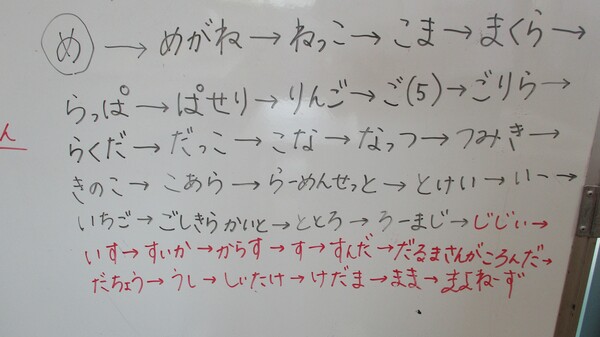 め → めがね → ねっこ → こま → まくら →
らっぱ → ぱせり → りんご → ご(5) → ごりら →
らくだ → だっこ → こな → なっつ → つみき →
きのこ → こあら → らーめんせっと → とけい → いー →
いちご → ごしきらかいと → ととろ → ろーまじ → じじぃ →
いす → すいか → からす → す → すんだ → だるまさんがころんだ →
だちょう → うし → しいたけ → けだま → まま → まよねーず
ん